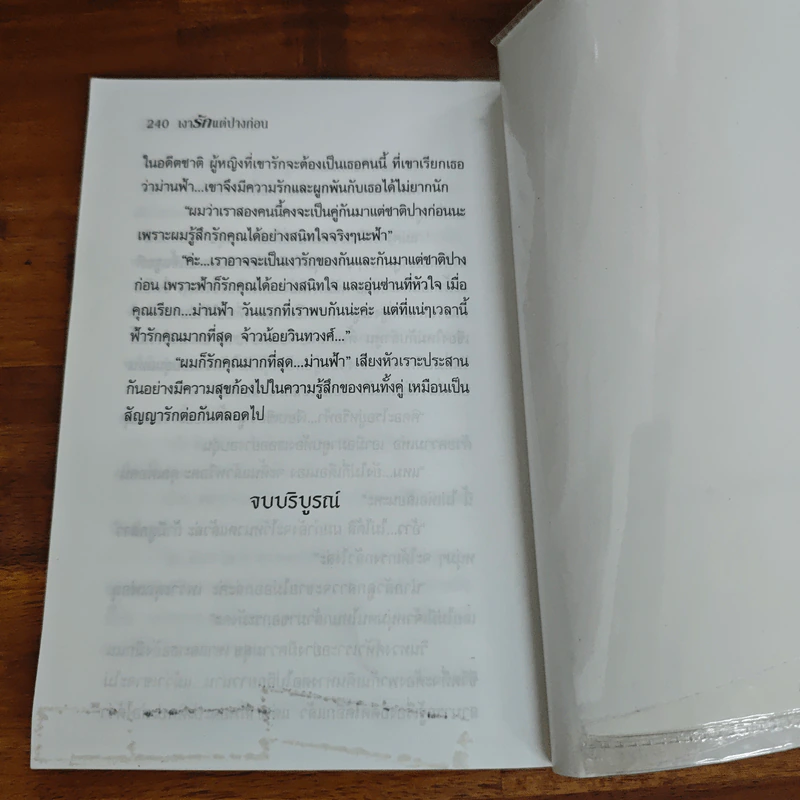 240 เงารักแต่ปางก่อน
ในอดีตชาติ ผู้หญิงที่เขารักจะต้องเป็นเธอคนนี้ ที่เขาเรียกเธอ
ว่าม่านฟ้า...เขาจึงมีความรักและผูกพันกับเธอได้ไม่ยากนัก
“ผมว่าเราสองคนนี้คงจะเป็นคู่กันมาแต่ชาติปางก่อนนะ
เพราะผมรู้สึกรักคุณได้อย่างสนิทใจจริงๆนะฟ้า”
“ค่ะ...เราอาจจะเป็นเงารักของกันและกันมาแต่ชาติปาง
ก่อน เพราะฟ้าก็รักคุณได้อย่างสนิทใจ และอุ่นซ่านที่หัวใจ เมื่อ
คุณเรียก...ม่านฟ้า วันแรกที่เราพบกันน่ะค่ะ แต่ที่แน่ๆเวลานี้
ฟ้ารักคุณมากที่สุด จ้าวน้อยวินทวงศ์...”
“ผมก็รักคุณมากที่สุด...ม่านฟ้า” เสียงหัวเราะประสาน
กันอย่างมีความสุขก้องไปในความรู้สึกของคนทั้งคู่ เหมือนเป็น
สัญญารักต่อกันตลอดไป
จบบริบูรณ์